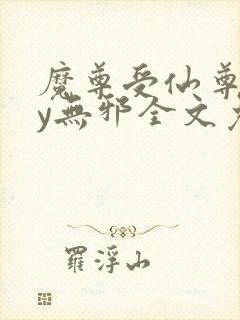 魔尊受仙尊
y無邪全文
羅浮山